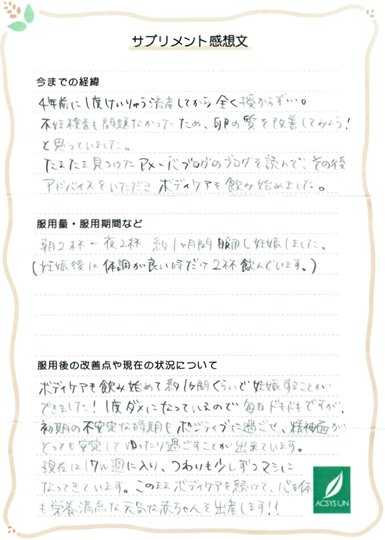 サプリメント感想文
今までの経緯
4年前に1度けいりゅう流産してから全く授からず…。
不妊検査も問題なかったため、卵の質を改善してみよう!
と思っていました。
たまたま見つけたアメーバブログのブログを読んで、その後
アドバイスをいただきボディケアを飲み始めました。
服用量・服用期間など
朝2杯 - 夜2杯 約1ヶ月間服用し妊娠しました。
(妊娠後は体調が良い時だけ2杯飲んでいます。)
服用後の改善点や現在の状況について
ボディケアを飲み始めて約1ヶ月くらいで妊娠することが
できました!1度ダメになっているので毎日ドキドキですが、
初期の不安定な時期もポジティブに過ごせ、精神面が
とっても安定してゆったり過ごすことが出来ています。
現在は17w週に入り、つわりも少しずつマシに
なってきています。このままボディケアを続けて、心も体
も栄養満点な元気な赤ちゃんを出産します!!
ACSYSUN